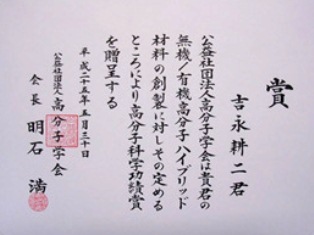 賞
吉永耕二君
公益社団法人高分子学会は貴君の
無機/有機高分子ハイブリッド
材料の創製に対しその定める
ところにより高分子科学功績賞
を贈呈する
平成二十五年五月三十日
公益社団法人高分子学会
会長 明石 満